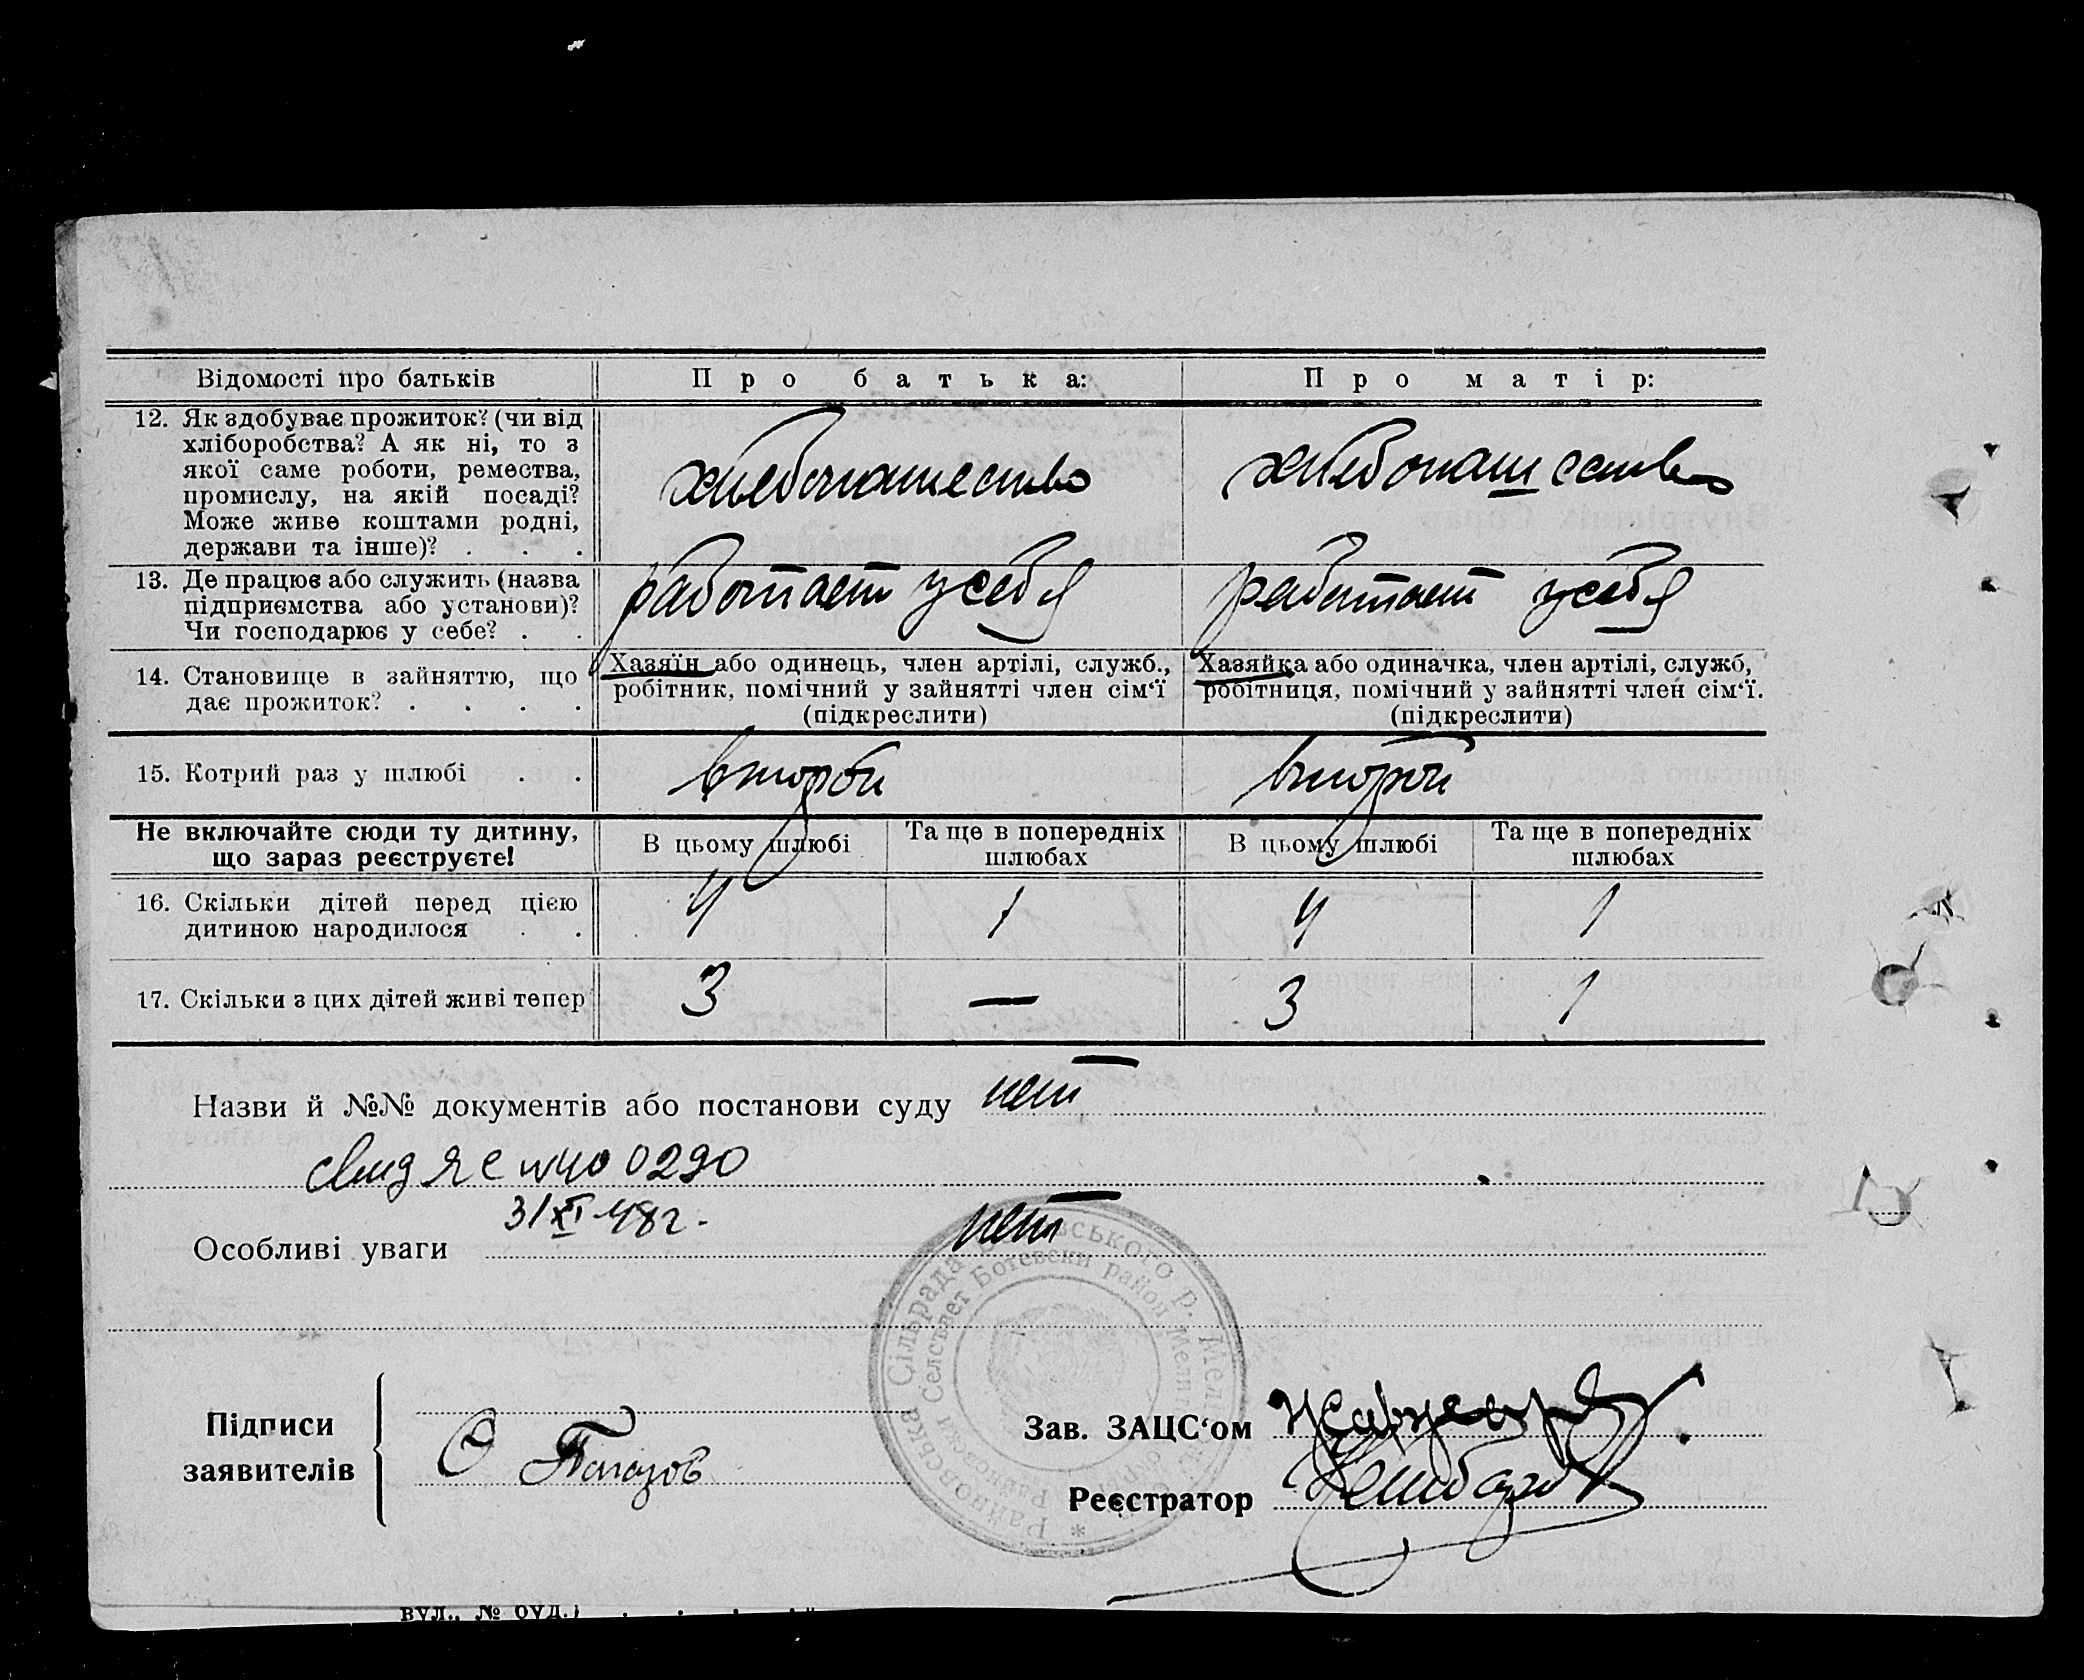 Відомості про батьків
Про батька:
Про матір:
12. Як здобуває прожиток? (чи від
хліборобства? А як ні, то з
якої саме роботи, ремества,
промислу, на якій посаді?
Може живе коштами родні,
держави та інше)? . . .
хлебопашество
хлебопашество
13. Де працює або служить (назва
підприємства або установи)?
Чи господарює у себе? . .
работает у себя
работает у себя
14. Становище в зайняттю, що
дає прожиток? . . . .
Хазяїн або одинець, член артілі, служб.,
робітник, помічний у зайнятті член сім‘ї
(підкреслити)
Хазяйка або одиначка, член артілі, служб,
робітниця, помічний у зайнятті член сім‘ї.
(підкреслити)
15. Котрий раз у шлюбі . .
второй
второй
Не включайте сюди ту дитину,
що зараз реєструєте!
В цьому шлюбі
Та ще в попередніх
шлюбах
В цьому шлюбі
Та ще в попередніх
шлюбах
16. Скільки дітей перед цією
дитиною народилося . .
4 1 4 1
17. Скільки з цих дітей живі тепер
3 — 3 1
Назви й №№ документів або постанови суду нет
0290
31/XI-48г.
Особливі уваги нет
Сільрада
Райновська
вського р. Мел
Селсъвет Ботевски район Мелит
Райновски
Підписи
заявителів
С Палазов
Зав. ЗАЦС‘ом
Реєстратор
вул., № буд.)